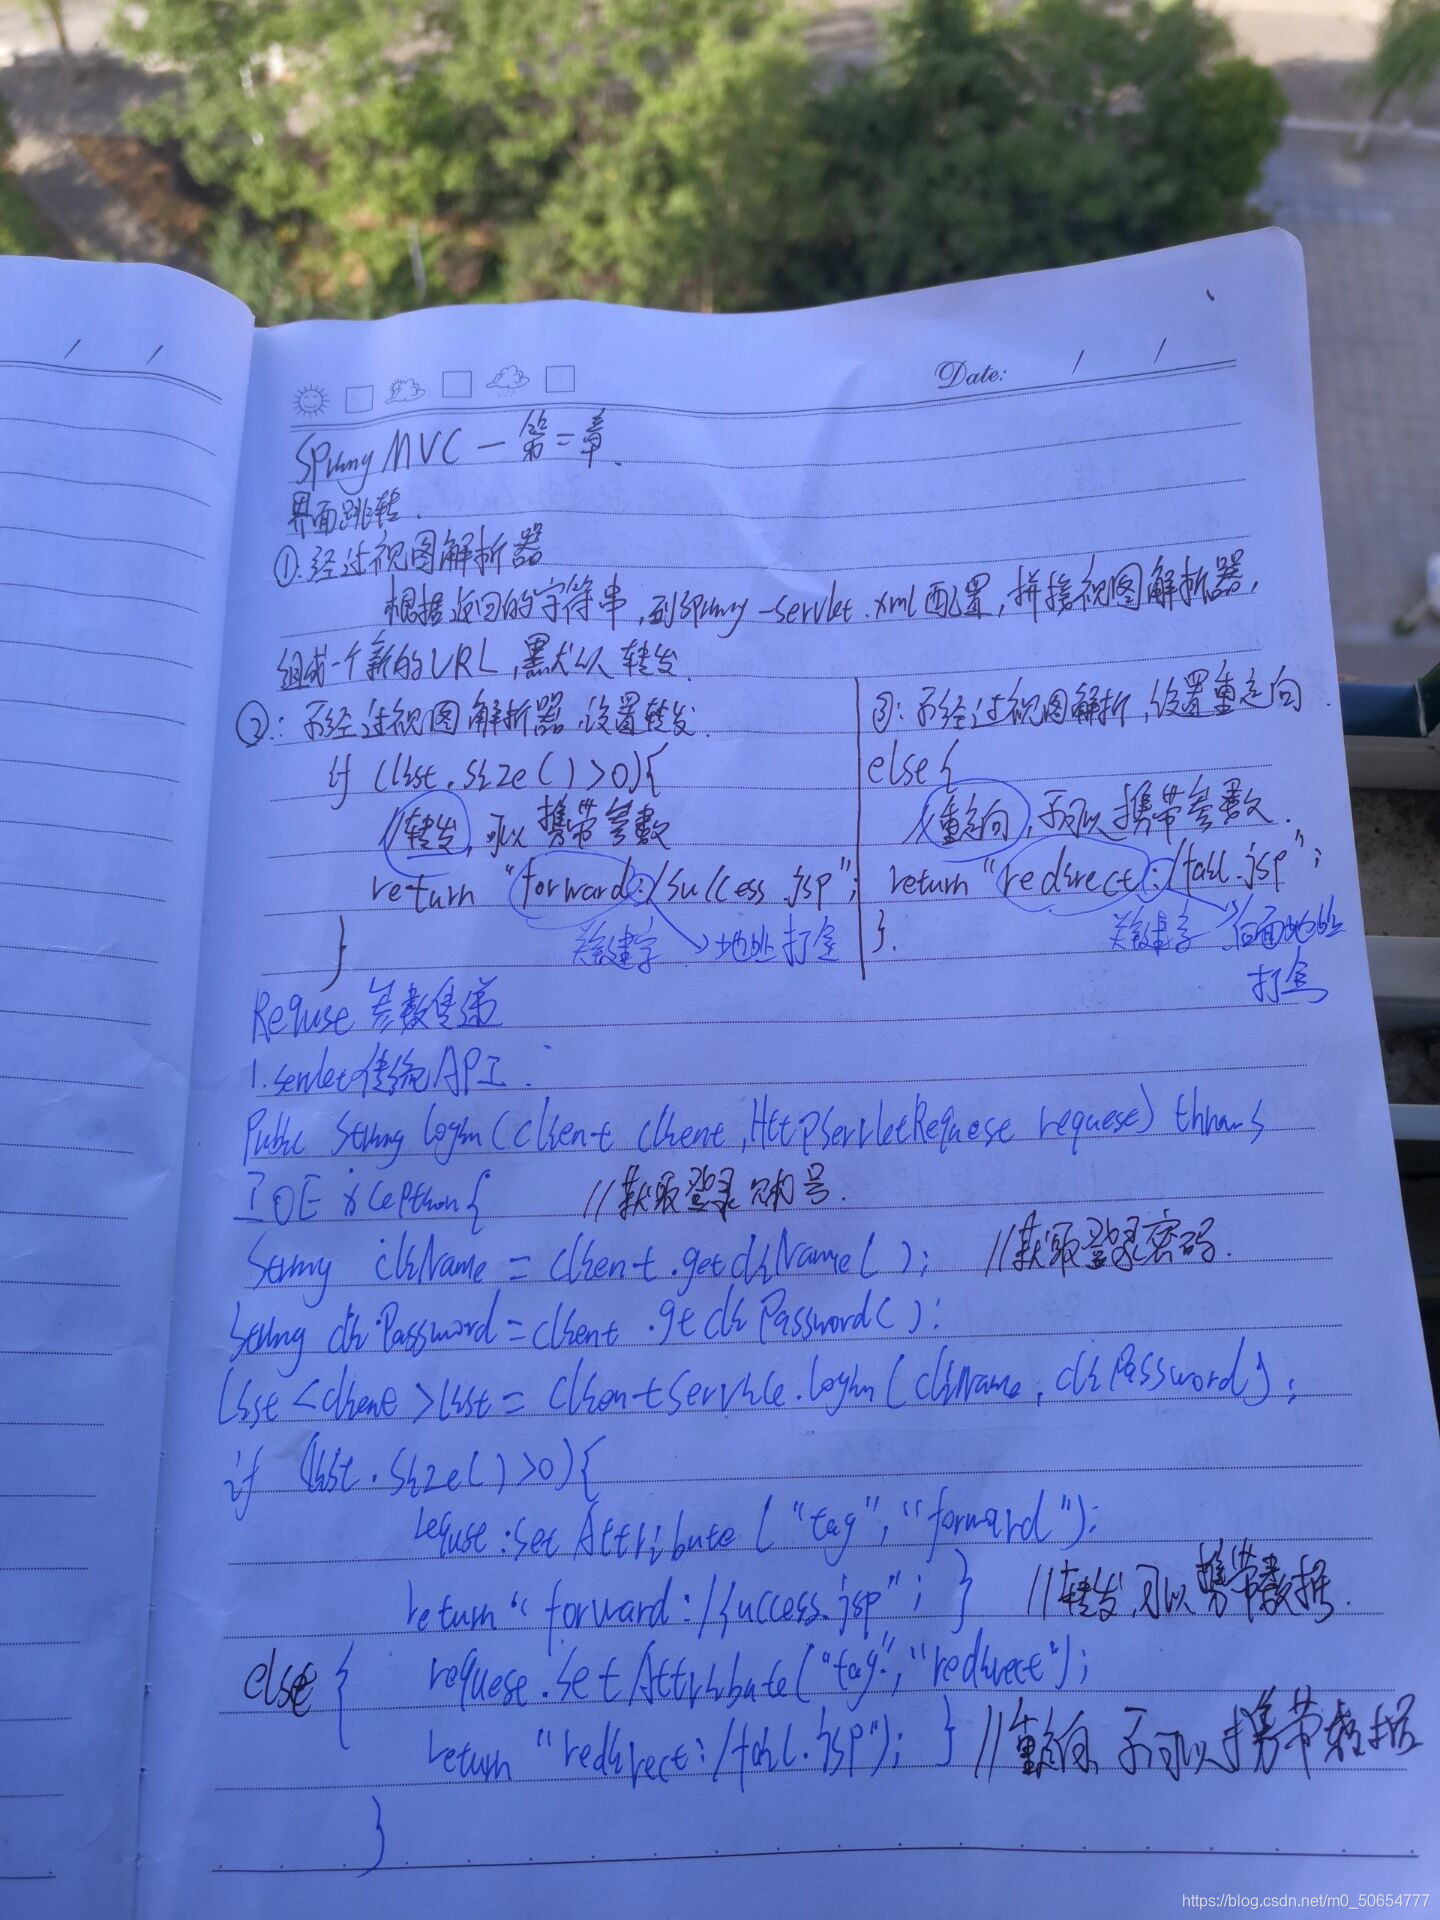 Date: / /
Spring MVC — 第二章.
界面跳转.
①.经过视图解析器
根据返回的字符串,到Spring-servlet.xml配置,拼接视图解析器,
组成一个新的URL,默认转发.
②:不经过视图解析器.设置转发.
if (list.size()>0){
//转发,可以携带参数
return "forward:/success.jsp";
关键字 地址打全
}
③:不经过视图解析,设置重定向.
else{
//重定向,不可以携带参数.
return "redirect:/fail.jsp";
}. 关键字 后面地址
打全
Requse 参数传递
1.servlet传统API:
Public String login(client client,HttpServletRequese requese) throws
IOException{ //获取登录账号.
String cliName = client.getcliName(); //获取登录密码.
String cliPassword=client.getcliPassword():
list<client>list=clientService.login(cliName,cliPassword);
if (list.size()>0){
requse.setAttribute("tag","forward");
return"forward:/success.jsp"; } //转发,可以携带数据.
else{ requese.setAttribute("tag","redirect");
return "redirect:/fail.jsp"); } //重定向,不可以携带数据
}
https://blog.csdn.net/m0_50654777